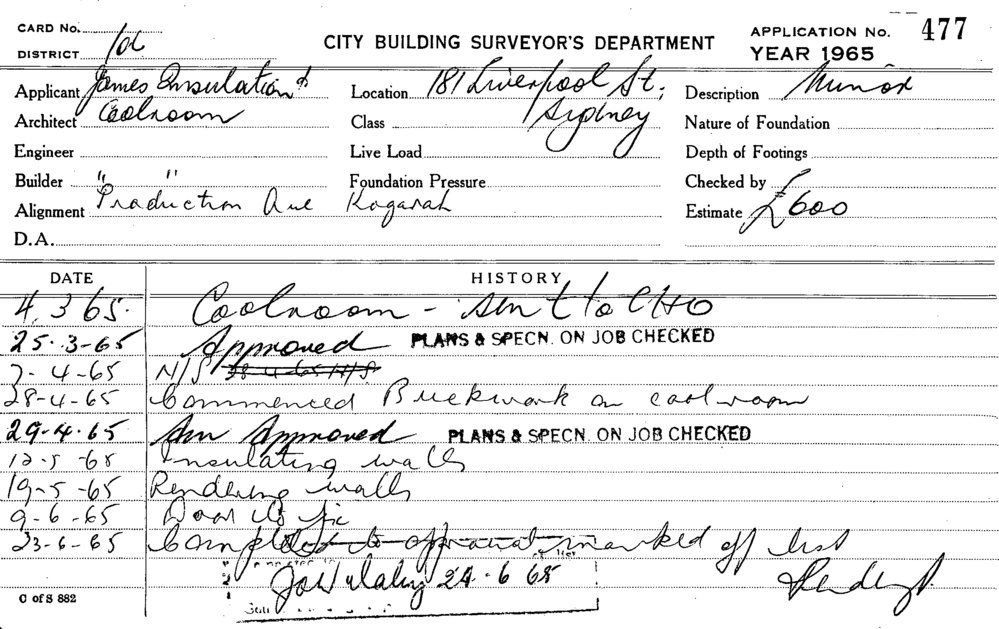 CARD No.
DISTRICT
CITY BUILDING SURVEYOR'S DEPARTMENT
APPLICATION No. 477
YEAR 1965
Applicant James Insulation &
Location 181 Liverpool St,
Description Minor
Architect Coolroom
Class Sydney
Nature of Foundation
Engineer
Live Load
Depth of Footings
Builder " "
Foundation Pressure
Checked by
Alignment Production Ave Kogarah
Estimate £600
D.A.
DATE HISTORY
4.3 65. Coolroom - sent to CHO
25.3-65 Approved PLANS & SPECN. ON JOB CHECKED
7-4-65 N/S 28-4-65 N/S
28-4-65 Commenced Brickwork on coolroom
29-4.65 Approved PLANS & SPECN. ON JOB CHECKED
12-5-65 Insulating walls
19-5-65 Rendering walls
9-6-65 Door to fix
23-6-65 Completed to approval marked off list
24.6 65
C of S 882